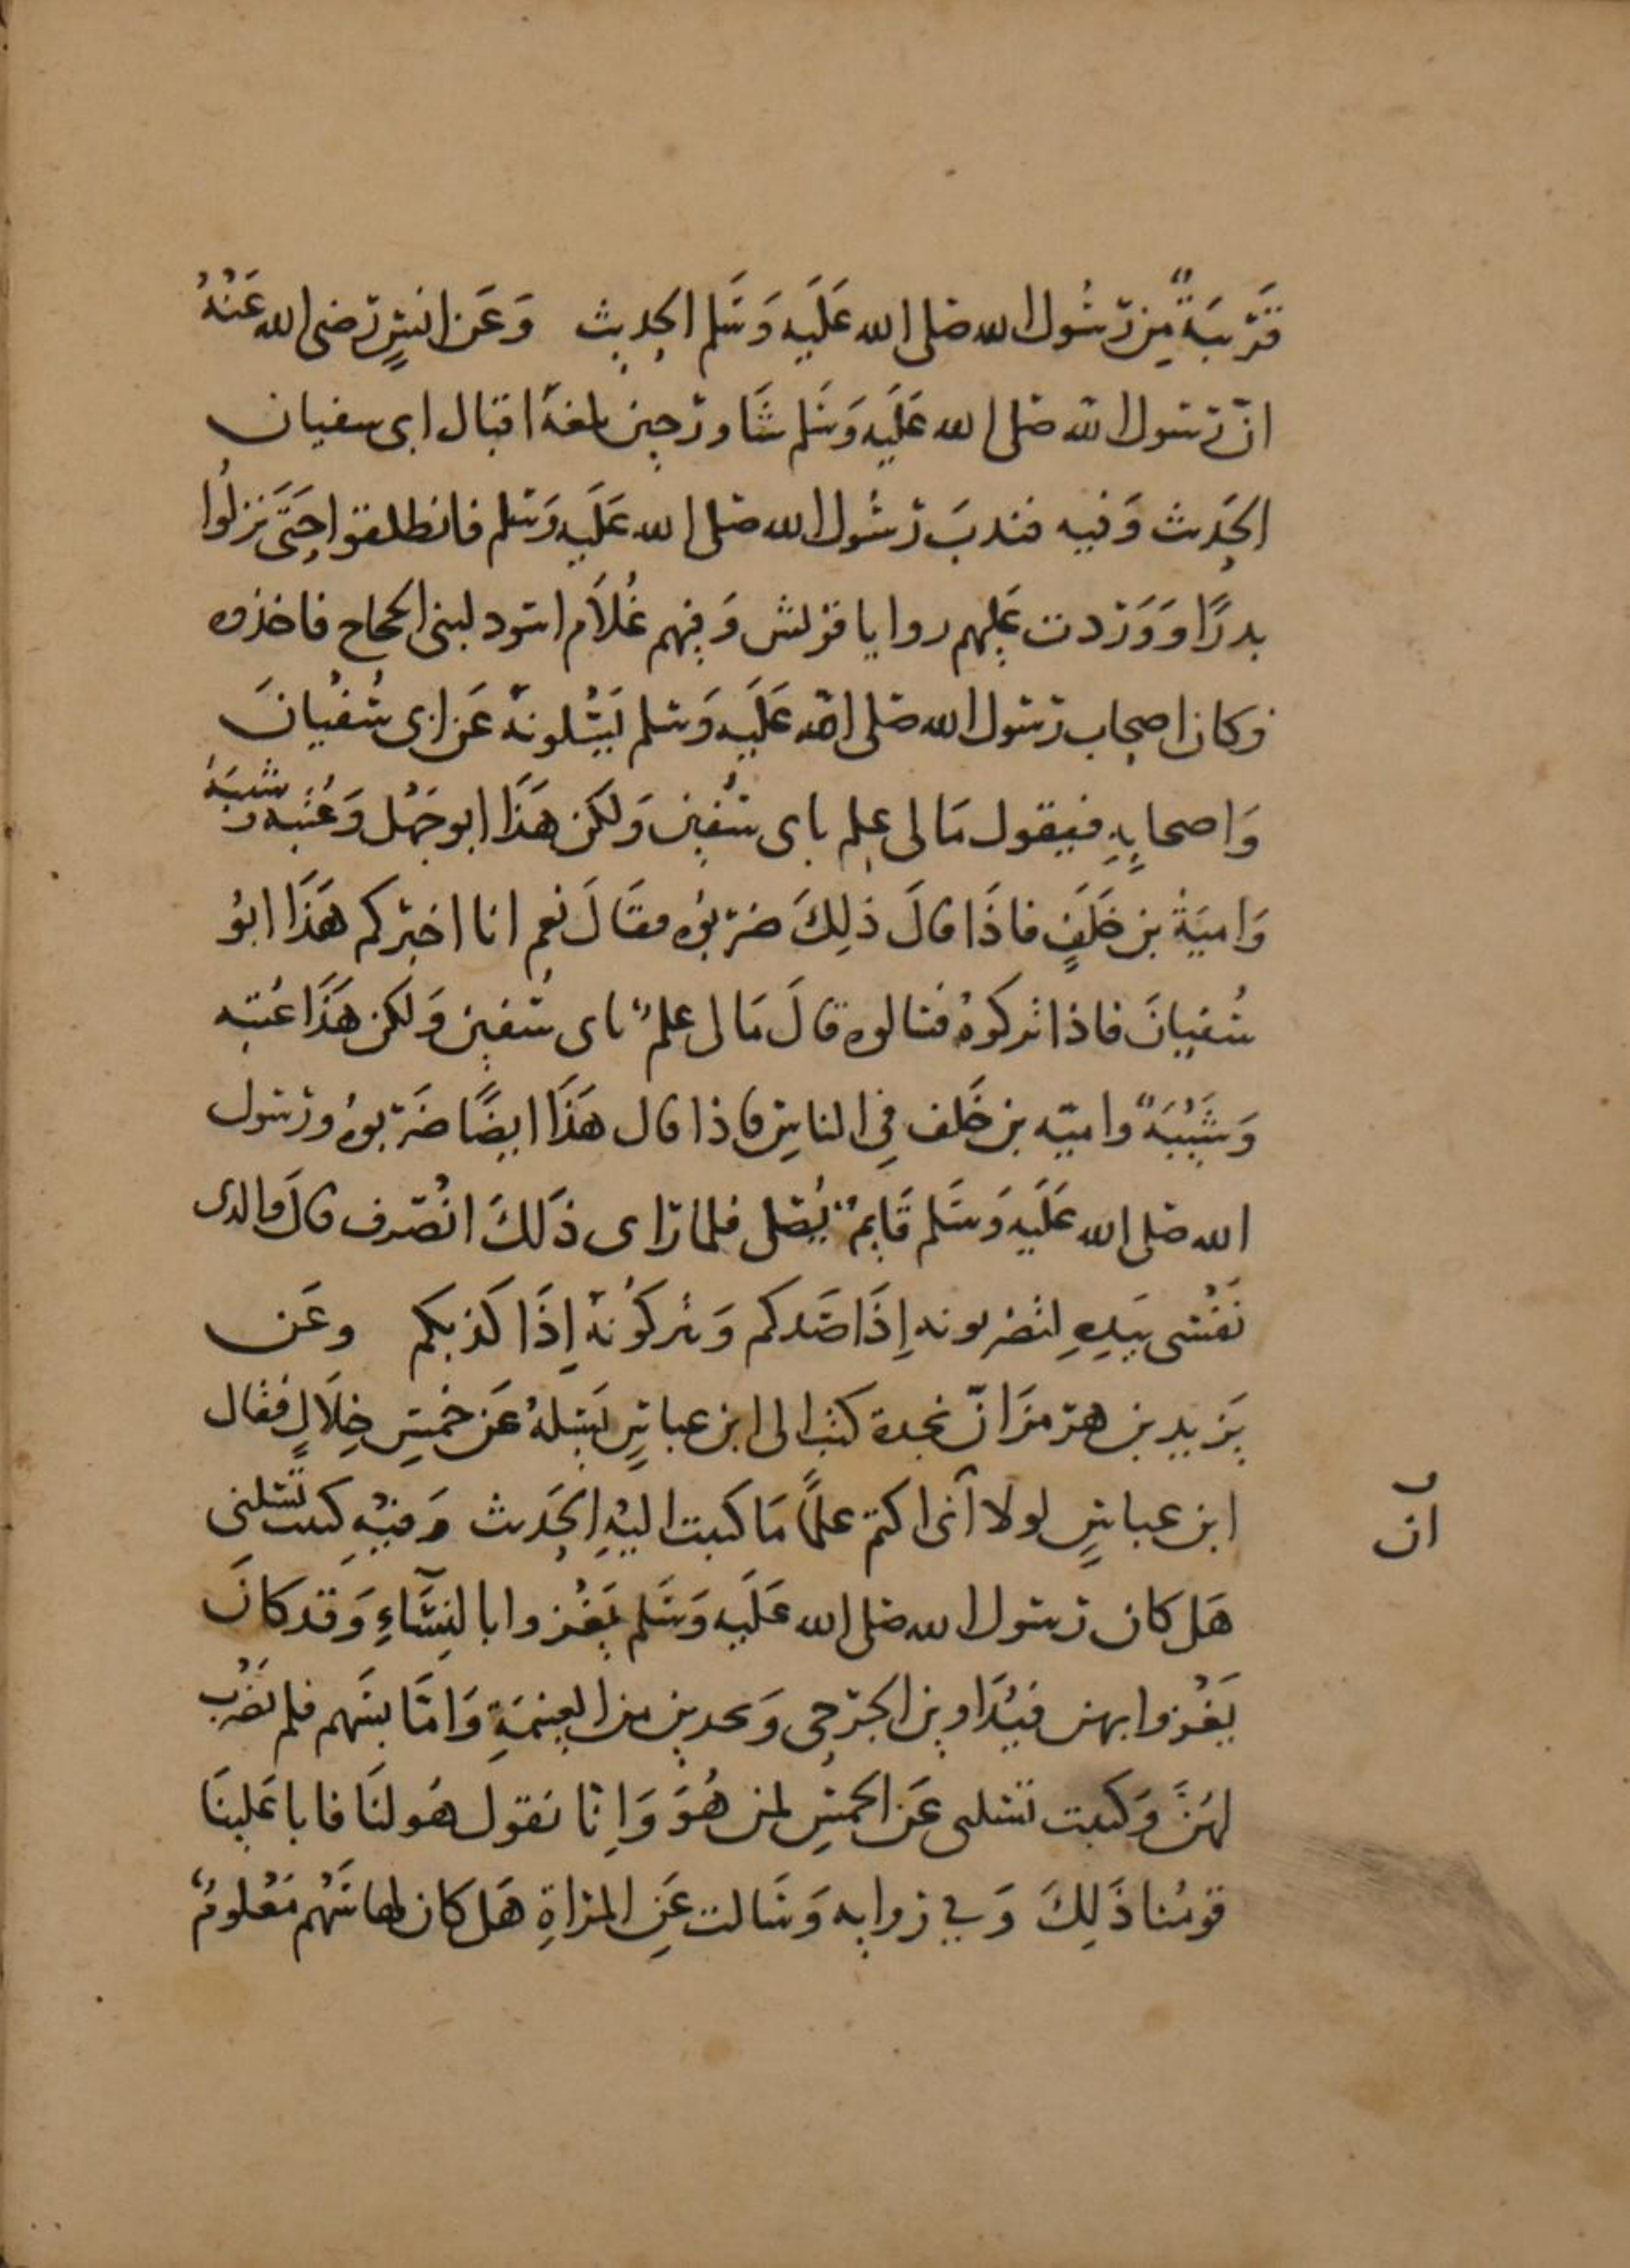 قَرْيبَةً مِن رسُول الله صلى الله عَلَيه وَسَلم الحديث وَعَن انسٍ رضى الله عَنْهُ
انّ رسول الله صلى الله عَلَيه وَسَلم شَاور حِين بلغهُ اقبال ابى سفيان
الحَديث وَفيه فندبَ رسُول الله صلى الله عَلَيه وَسلم فانطلقوا حَتَى نزلُوا
بدرًا وَوَرَدت عَليهم روايا قريش وَفِيهم غُلاَم اسود لبنى الححاح فاخذوه
وكان اصحاب رسول الله صلى الله عَلَيه وَسلم يَسْئلونهُ عَن ابى سُفيْانَ
وَاصحابِهِ فيقول مَا لى عِلم بابى سُفين وَلكن هَذَا ابو جَهْل وَعُتبه وَشَيبَهُ
وَاميَةُ بن خَلَفٍ فاذَا قالَ ذلِكَ ضربوُه فقَالَ نعم انا اخبركم هَذَا ابوُ
سُفيانَ فاذا تركوهُ فسالوه قالَ مَا لى علمٌ بابى سُفين وَلكن هَذَا عُتبه
وَشَيْبَهً واميّه بن خَلف فِي الناسِ فاذا قال هَذَا ايضًا ضَربوهُ ورسول
الله صلى الله عَلَيه وَسَلم قَايمٌ يُصَلى فلما رَاى ذَلكَ انْصَرف قالَ والدى
نَفْسى بيَدِهِ لتضربونه إِذَا صَدكم وَتتركوُنهُ إِذَا كذبكم وعَن
يَزيد بن هرمز انّ نجدة كتب الى ابن عباسٍ يَسئلهُ عَن خمسِ خِلاَلٍ فقال
ابن عباسٍ لولا أنى اكتم علمًا مَا كتبت اليْهِ الحَديث وَفيْهِ كتبت تسئلنى
ان
هَل كان رسول الله صلى الله عَلَيه وَسَلم يَغْزوا بالنِسَّاءِ وَقد كانَ
يَغْزوا بهن فيُدَاوين الجرحى وَيحدين من الغنيمَةِ وَامَّا بسَهم فلم يَضْرب
لهَنَّ وَكتبت تسئلنى عَن الخمسِ لمن هُوَ وَاِنّا نقول هُو لنَا فابا عَلينَا
قومُنا ذَلِكَ وَفي روايه وَسَالت عَنِ المراةِ هَل كان لها سَهْم مَعْلومٌ